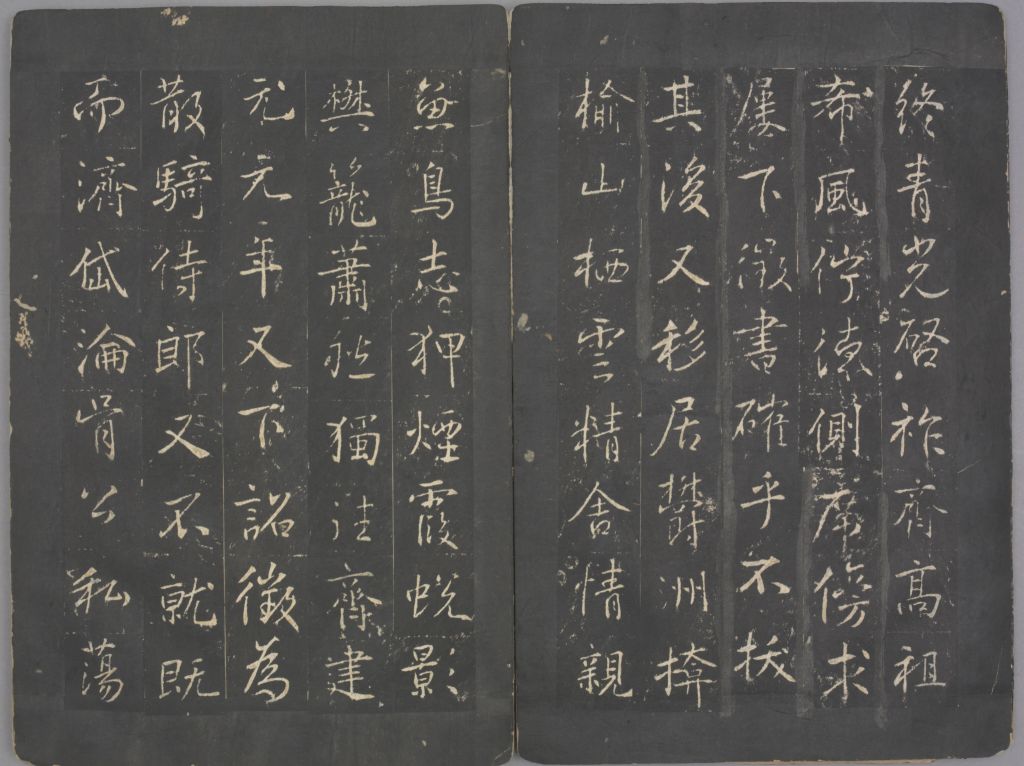 終青光啓祚齊高祖
希風佇德側席傍求
屢下徵書確乎不拔
其後又移居鬱洲揜
榆山栖雲精舍情親
魚鳥志狎煙霞蛻影
樊籠蕭然獨往齊建
元元年又下詔徵為
散騎侍郎又不就既
而濟岱淪胥公私蕩